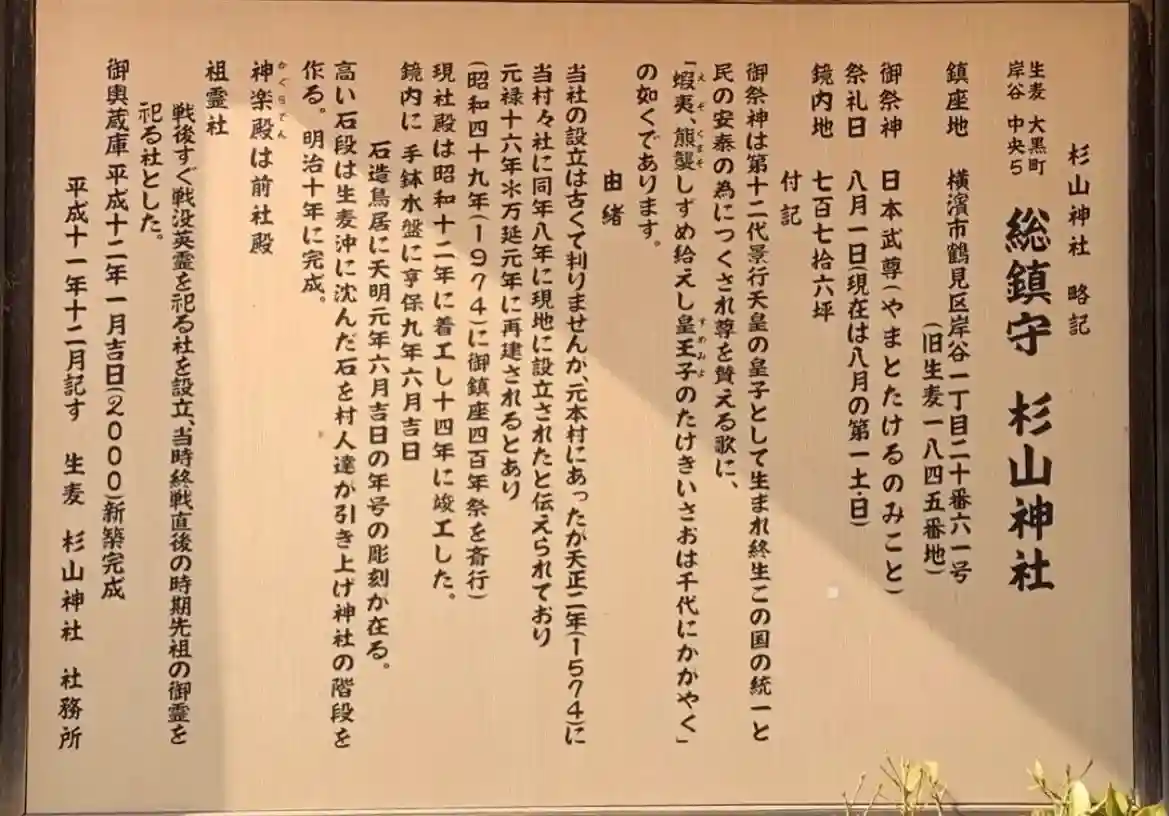 杉山神社 略記
生麦 大黒町
岸谷 中央5
総鎮守 杉山神社
鎮座地 横濱市鶴見区岸谷一丁目二十番六一号
(旧生麦一八四五番地)
御祭神 日本武尊(やまとたけるのみこと)
祭礼日 八月一日(現在は八月の第一土・日)
鏡内地 七百七拾六坪
付記
御祭神は第十二代景行天皇の皇子として生まれ終生この国の統一と
民の安泰の為につくされ尊を賛える歌に、
「蝦夷、熊襲しずめ給えし皇王子のたけきいさおは千代にかかやく」
えぞ くまそ すめみよ
の如くであります。
由緒
当社の設立は古くて判りませんか、元本村にあったが天正二年(1574)に
当村々社に同年八年に現地に設立されたと伝えられており
元禄十六年＊万延元年に再建されるとあり
(昭和四十九年(1974)に御鎮座四百年祭を斎行)
現社殿は昭和十二年に着工し十四年に竣工した。
鏡内に 手鉢水盤に亨保九年六月吉日
石造鳥居に天明元年六月吉日の年号の彫刻か在る。
高い石段は生麦沖に沈んだ石を村人達が引き上げ神社の階段を
作る。明治十年に完成。
神楽殿は前社殿
かぐらでん
祖霊社
戦後すぐ戦没英霊を祀る社を設立、当時終戦直後の時期先祖の御霊を
祀る社とした。
御輿蔵庫 平成十二年一月吉日(2000)新築完成
平成十一年十二月記す 生麦 杉山神社 社務所